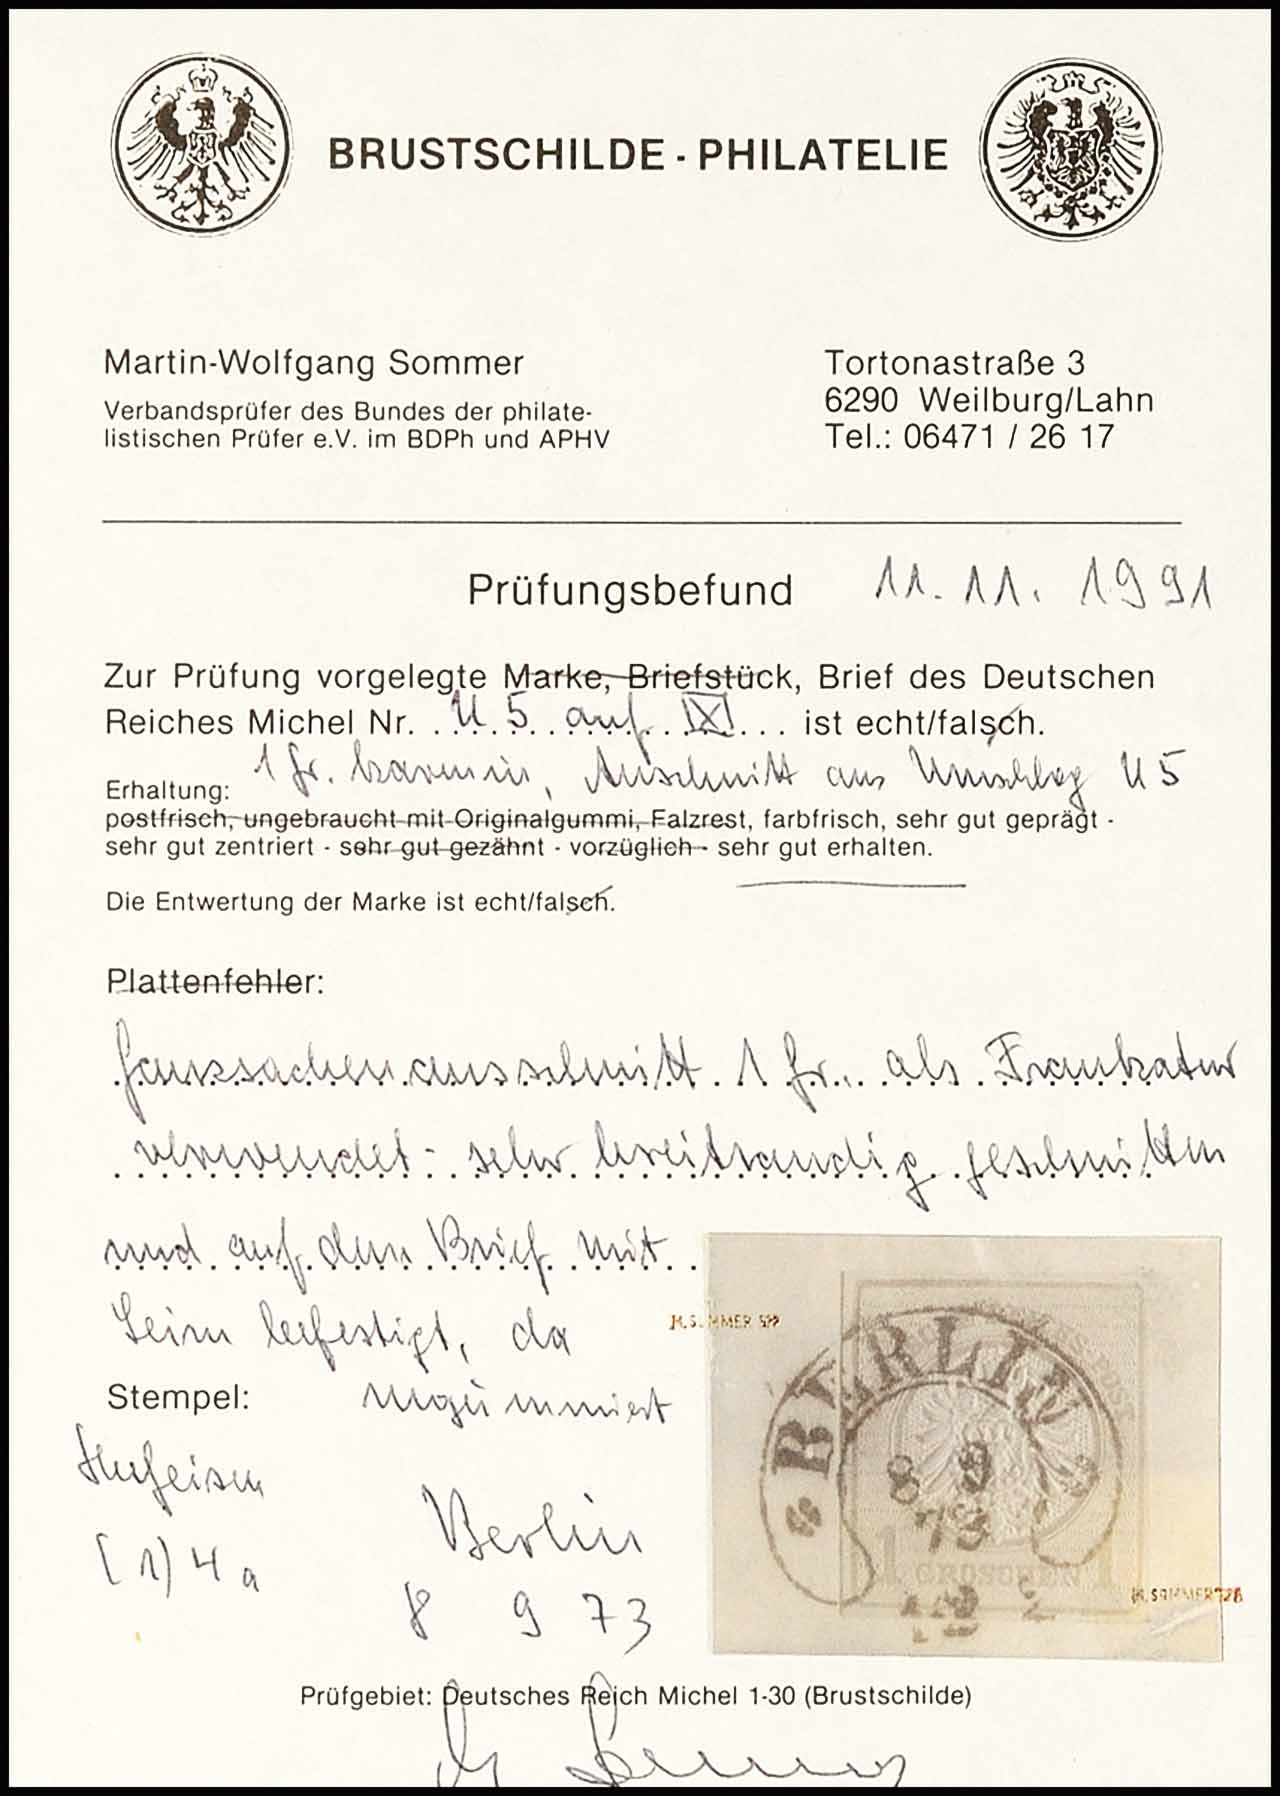 BRUSTSCHILDE - PHILATELIE
Martin-Wolfgang Sommer
Verbandsprüfer des Bundes der philate-
listischen Prüfer e.V. im BDPh und APHV
Tortonastraße 3
6290 Weilburg/Lahn
Tel.: 06471 / 26 17
Prüfungsbefund 11.11.1991
Zur Prüfung vorgelegte Marke, Briefstück, Brief des Deutschen
Reiches Michel Nr. U 5 auf ist echt/falsch.
1 Gr. karmin, Ausschnitt aus Umschlag U 5
Erhaltung:
postfrisch, ungebraucht mit Originalgummi, Falzrest, farbfrisch, sehr gut geprägt -
sehr gut zentriert - sehr gut gezähnt - vorzüglich - sehr gut erhalten.
Die Entwertung der Marke ist echt/falsch.
Plattenfehler:
Ganzsachenausschnitt 1 Gr. als Frankatur
verwendet - sehr breitrandig geschnitten
und auf dem Brief mit
Leim befestigt, da
ungummiert
Stempel:
Hufeisen
(1) 4a
Berlin
8 9 73
M. SOMMER
BERLIN
8 9
73
1 GROSCHEN 1
M. SOMMER
Prüfgebiet: Deutsches Reich Michel 1-30 (Brustschilde)